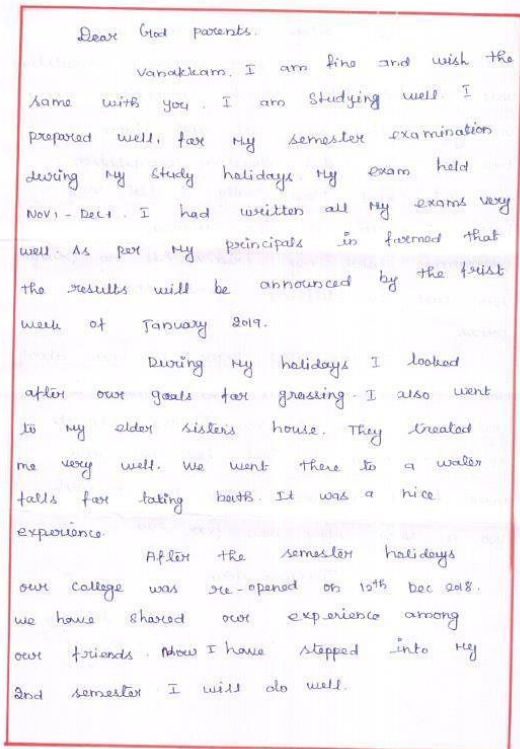 Dear God parents.
Vanakkam. I am fine and wish the
same with you. I am Studying well. I
prepared well, for My semester examination
during My study holidays. My exam held
Nov, - Dec. I had written all My exams very
well. As per My principals in formed that
the results will be announced by the frist
week of January 2019.
During My holidays I looked
after our goats for grassing. I also went
to My elder sister's house. They treated
me very well. We went there to a water
falls for taking bath. It was a nice
experience.
After the semester holideys
our College was re-opened on 12th Dec 2018.
we have shared our experience among
our friends. Now I have stepped into My
2nd semester I will do well.